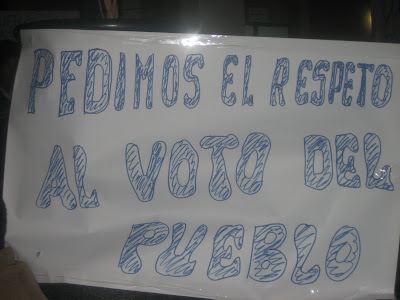 PEDIMOS EL RESPETO
AL VOTO DEL
PUEBLO